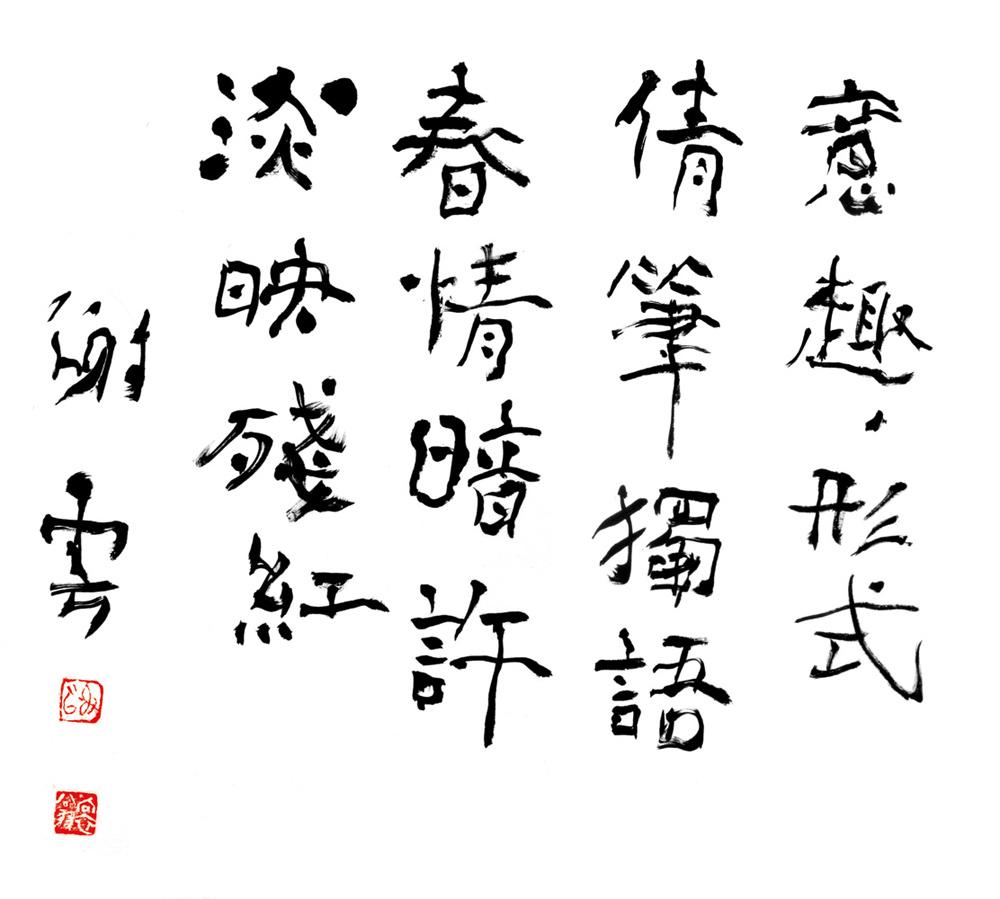 意趣·形式
倩筆獨語
春情暗許
淡映殘紅
謝雲